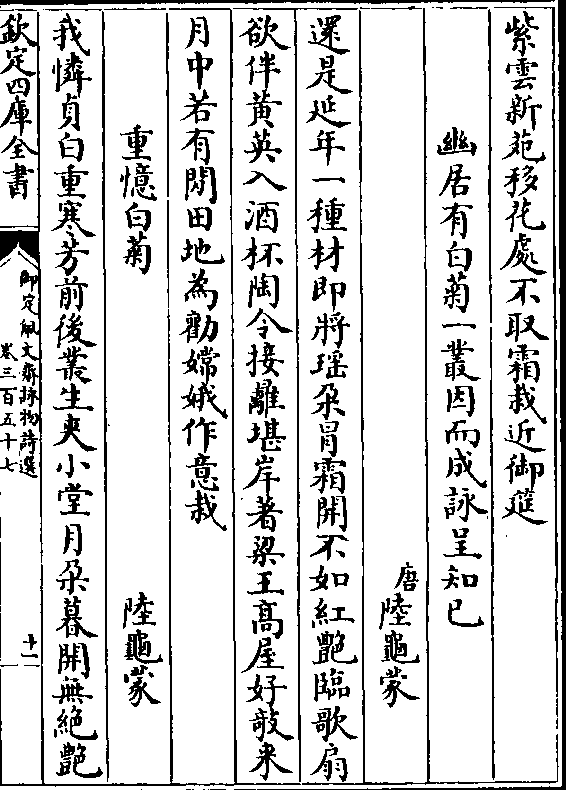 紫雲新苑移花處不取霜栽近御筵
幽居有白菊一叢因而成詠呈知已
唐陸龜蒙
還是延年一種材即將瑶朶冐霜開不如紅艶臨歌扇
欲伴黄英入酒杯陶令接離堪岸著梁王高屋好欹来
月中若有閒田地為勸嫦娥作意栽
重憶白菊　陸龜蒙
我憐貞白重寒芳前後叢生夾小堂月朶暮開無絶艶
欽定四庫全書
御定佩文齋詠物詩選
卷三百五十七
十一